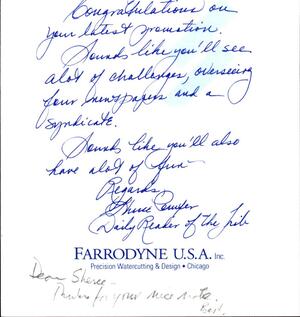 Congratulations on
your latest promotion.
Sounds like you'll see
alot of challenges, overseeing
four newspapers and a
syndicate.
Sounds like you'll also
have alot of fun
Regards
Daily Reader of the Trib
FARRODYNE U.S.A. Inc.
Precision Watercutting & Design • Chicago
Dear
Thanks for your nice note.